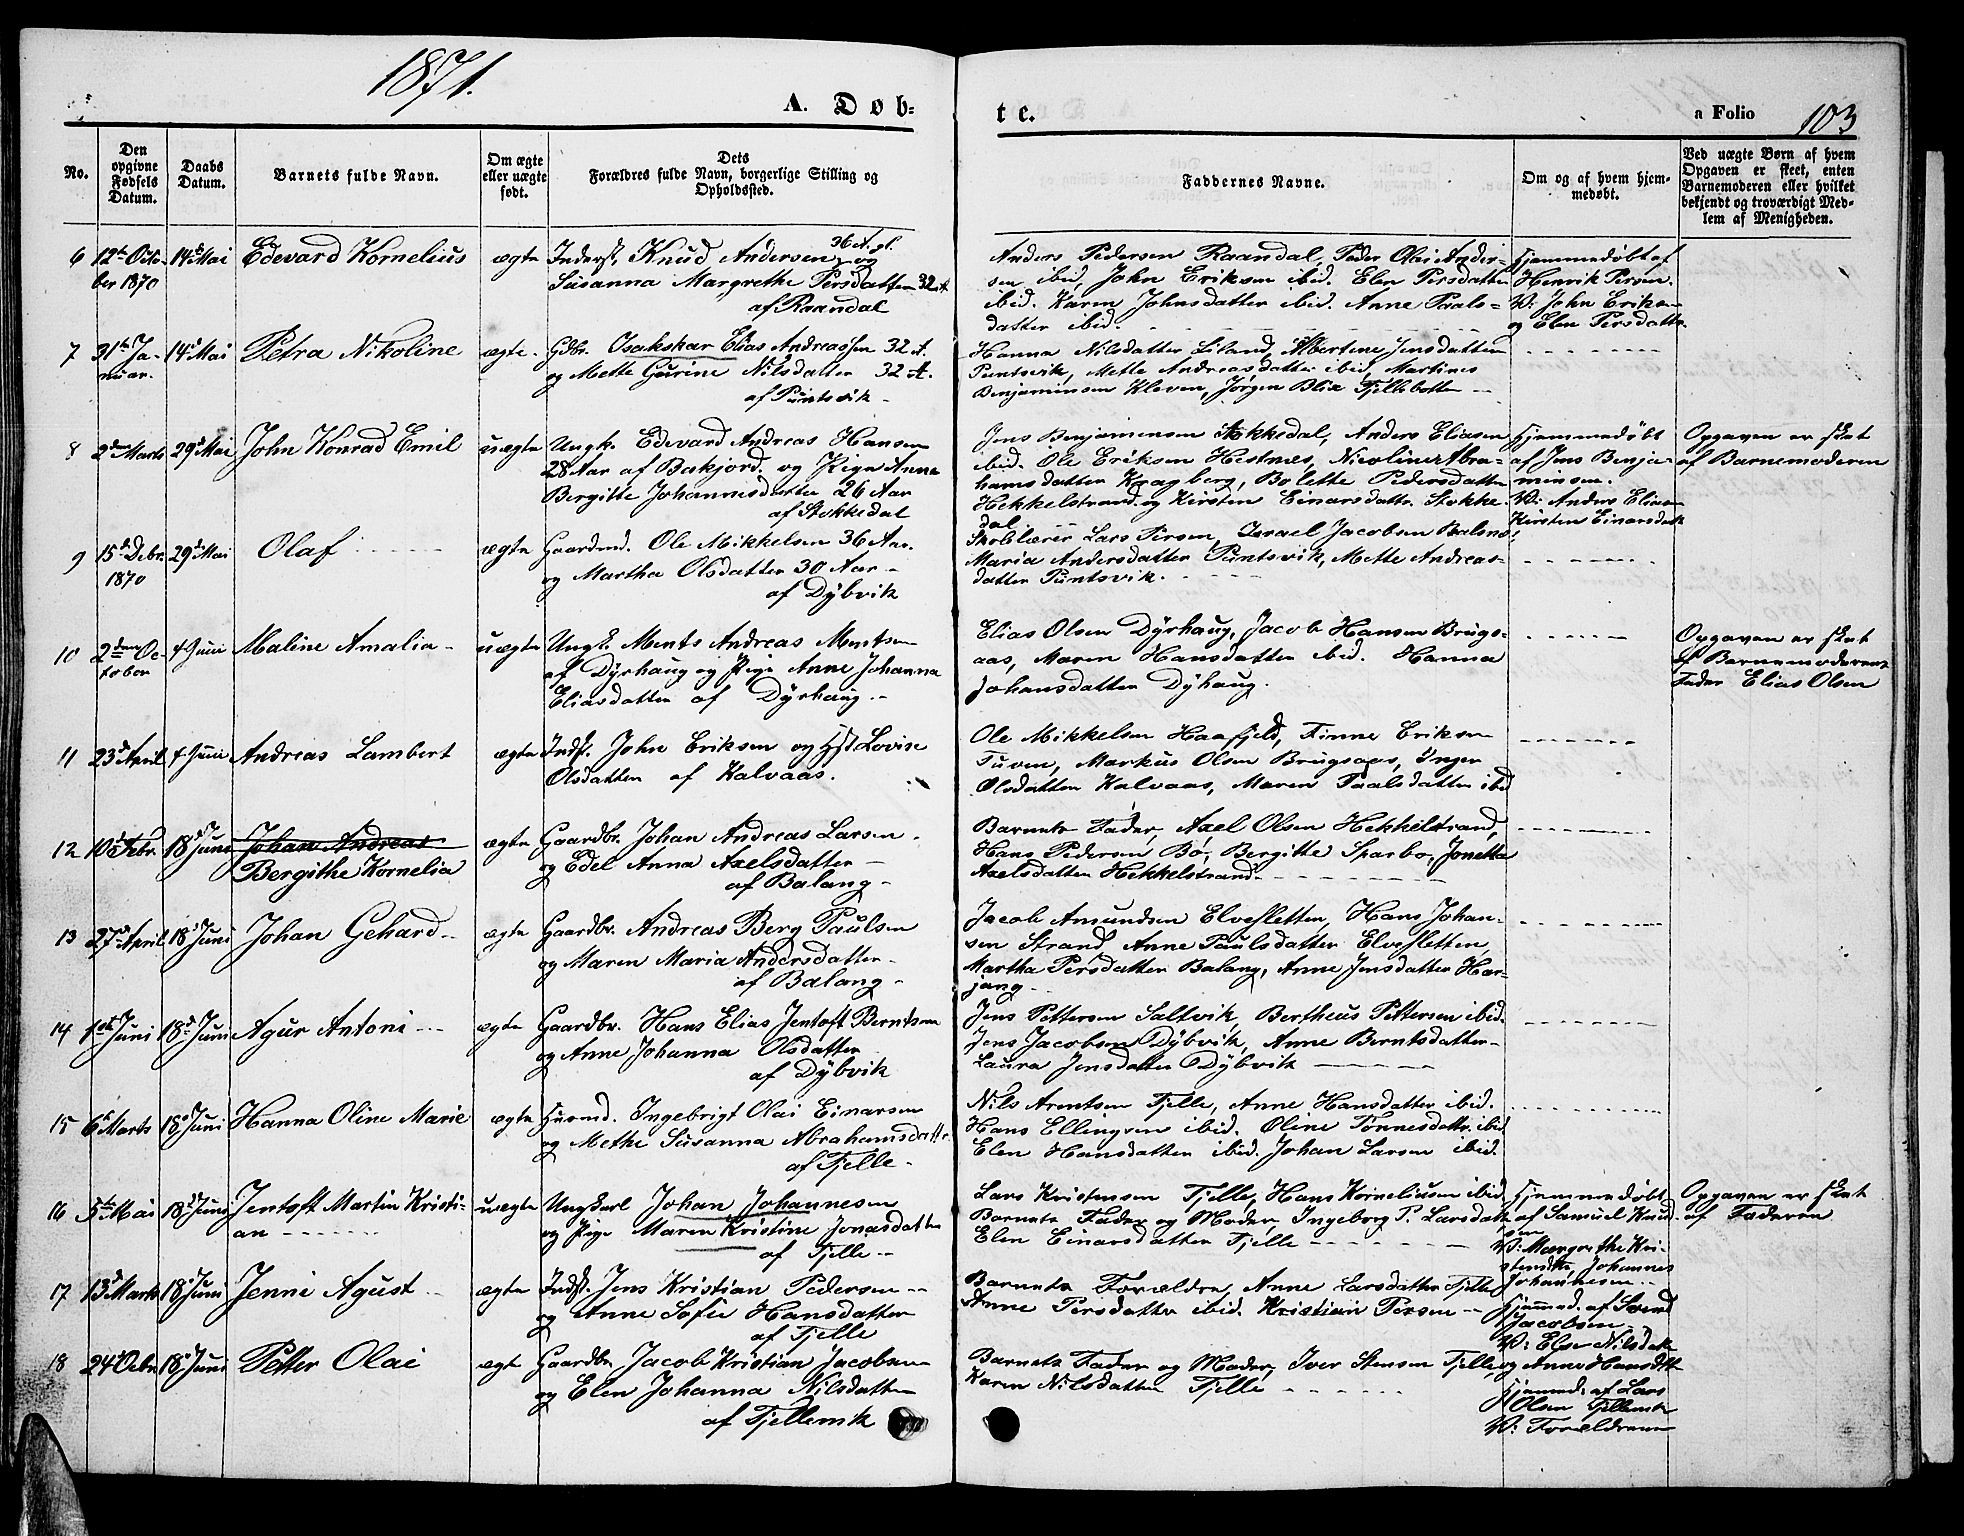 1871.
A. Døb=
te.
a Folio 103
No.
Den opgivne Fødsels Datum.
Daabs Datum.
Barnets fulde Navn.
Om ægte eller uægte født.
Dets Forældres fulde Navn, borgerlige Stilling og Opholdssted.
Faddernes Navne.
Om og af hvem hjemmedøbt.
Ved uægte Børn af hvem Opgaven er skeet, enten Barnemoderen eller hvilket bekjendt og troværdigt Medlem af Menigheden.
6 12te Octo- 14de Mai Edevard Kornelius ægte Inderst. Knud Andersen 36 A. gl. og
ber 1870 Susanna Margrethe Persdatter 32 A.
af Raandal
Anders Pedersen Raandal, Peder Olai Ander-
sen ibid, John Eriksen ibid. Elen Persdatter
ibid. Karen Johnsdatter ibid. Anne Paals-
datter ibid.
Hjemmedøbt af
Henrik Persen.
V: John Eriksen
og Elen Persdatter.
7 31te Ja- 14de Mai Petra Nikoline ægte. Gdbr. Osakskar Elias Andreassen 32 A.
nuar. og Mette Gurine Nilsdatter 32 A.
af Puntsvik
Hanna Nilsdatter Liland, Albertine Jensdatter
Puntsvik, Mette Andreasdatter ibid, Martines
Benjaminsen Kleven, Jørgen Blix Fjellbotten
8 2den Marts 29de Mai John Konrad Emil uægte Ungk. Edevard Andreas Hansen
28 Aar af Bakjord. og Pige Anna
Bergitte Johannesdatter 26 Aar
af Stokkedal
Jens Benjaminsen Stokkedal, Anders Eliasen
ibid. Ole Eriksen Hestnes, Nicoline Abra-
hamsdatter Kragberg, Bolette Pedersdatter
Hekkelstrand og Kirsten Einarsdatr. Stokke-
dal
Hjemmedøbt
af Jens Benja-
minsen.
V: Anders Eliasen
Kirsten Einarsdatr
Opgaven er skeet
af Barnemoderen
9 15de Debr. 29de Mai Olaf ægte Gaardmd. Ole Mikkelsen 36 Aar.
1870 og Martha Olsdatter 30 Aar
af Dybvik
Skolelærer Lars Persen, Israel Jacobsen Balsnes,
Maria Andersdatter Puntsvik, Mette Andreas-
datter Puntsvik.
10 2den Oc- 4 Juni Maline Amalia uægte Ungk. Ments Andreas Mentsen
tober af Dyrhaug og Pige Anne Johanna
Eliasdatter af Dyrhaug
Elias Olsen Dyrhaug, Jacob Hansen Brugs-
aas, Maren Hansdatter ibid. Hanna
Johansdatter Dyhaug.
Opgaven er skeet
af Barnemoderens
Fader Elias Olsen
11 23de April 4 Juni Andreas Lambert ægte Indst. John Eriksen og Hst Lovise
Olsdatter af Kalvaas.
Ole Mikkelsen Haafjeld, Finne Eriksen
Tuven, Markus Olsen Brugsaas, Inger
Olsdatter Kalvaas, Maren Paalsdatter ibid
12 10de Febr. 18de Juni Johan Andreas ægte Gaardbr. Johan Andreas Larsen
Bergithe Kornelia og Edel Anna Axelsdatter
af Balang
Barnets Fader, Axel Olsen Hekkelstrand,
Hans Pedersen Bø, Bergitte Sparbo, Jonetta
Axelsdatter Hekkelstrand
13 27de April 18de Juni Johan Gehard ægte Gaardbr. Andreas Berg Paulsen
og Maren Maria Andersdatter
af Balang
Jacob Amundsen Elvesletten, Hans Johan-
sen Strand, Anne Paulsdatter Elvesletten
Martha Persdatter Balang, Anne Jensdatter Har-
jang
14 1ste Juni 18de Juni Agur Antoni ægte Gaardbr. Hans Elias Jentoft Berntsen
og Anne Johanna Olsdatter
af Dybvik
Jens Pettersen Saltvik, Bertheus Pettersen ibid.
Jens Jacobsen Dybvik, Anne Berntsdatter
Laura Jensdatter Dybvik
15 6te Marts 18de Juni Hanna Oline Marie ægte Husmd. Ingebrigt Olai Einarsen
og Methe Susanna Abrahamsdatter
af Fjelle
Nils Arentsen Fjelle, Anne Hansdatter ibid.
Hans Ellingsen ibid. Oline Tønnesdatr. ibid
Elen Hansdatter ibid. Johan Larsen ibid.
16 5te Mai 18de Juni Jentoft Martin Kristi- uægte Ungkarl Johan Johannesen
an og Pige Maren Kristine Jonasdatter
af Fjelle
Lars Kristensen Fjelle, Hans Korneliusen ibid,
Barnets Fader og Moder, Ingeborg P. Larsdatr,
Elen Einarsdatter Fjelle
Hjemmedøbt
af Samuel Knud-
sen
V: Margrethe Kri-
stensdtr, Johannes
Johannesen
Opgaven er skeet
af Faderen
17 13de Marts 18de Juni Jenni Agust ægte Indst. Jens Kristian Pedersen
og Anne Sofie Hansdatter
af Fjelle
Barnets Forældre, Anne Larsdatter Fjelle
Anne Persdatter ibid. Kristian Persen
Hjemmed. af Svend
Jacobsen
V: Else Nilsdatr
og Anne Hansdtr
18 24de Octr 18de Juni Petter Olai ægt Gaardbr Jacob Kristian Jacobsen
og Elen Johanna Nilsdatter
af Fjellemrk
Barnets Fader og Moder, Iver Stensen Fjelle,
Karen Nilsdatter Fjelle
Hjemmed. af Lars
Olsen Fjellemrk
V: Forældrene